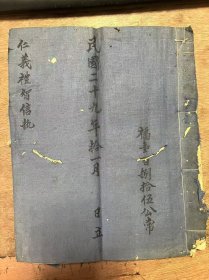 福
捌拾伍公常
民國二十九年拾一月 日立
仁義禮智信執